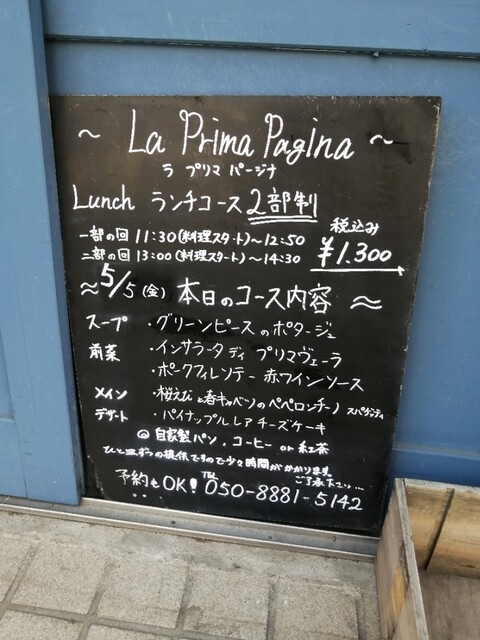 ~ La Prima Pagina ~
ラ プリマ パージナ
Lunch ランチコース 2部制
一部の回 11:30(料理スタート)~12:50
二部の回 13:00(料理スタート)~14:30
税込み
¥1.300
≈ 5/5(金) 本日のコース内容 ≈
スープ ・グリーンピースのポタージュ
前菜 ・インサラータ ディ プリマヴェーラ
・ポークフィレソテー 赤ワインソース
メイン ・桜えびと春キャベツのペペロンチーノ スパゲッティ
デザート ・パイナップルレアチーズケーキ
@ 自家製パン、コーヒー or 紅茶
ひと皿ずつの提供ですので少々時間がかかります
ご了承下さい…
予約もOK! TEL 050-8881-5142